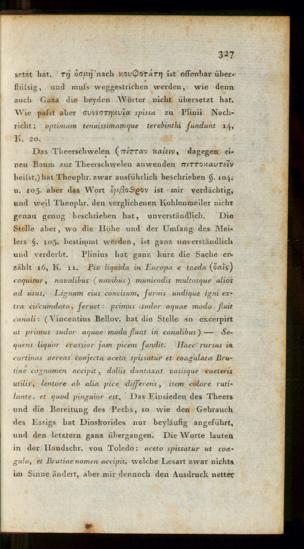 327
setzt hat. τῇ ὀσμῇ nach κουφοτάτη ist offenbar über-
flüssig, und muss weggestrichen werden, wie denn
auch Gaza die beyden Wörter nicht übersetzt hat.
Wie passt aber συνεστηκυῖα spissa zu Plinii Nach-
richt: optimam tenuissimamque terebinthi fundunt 14,
K. 20.
Das Theerschwelen (πίτταν καίειν, dagegen ei-
nen Baum zur Theerschwelen anwenden πιττοκαυτεῖν
heisst,) hat Theophr. zwar ausführlich beschrieben §. 104.
u. 105. aber das Wort ist mir verdächtig,
und weil Theophr. den verglichenen Kohlenmeiler nicht
genau genug beschrieben hat, unverständlich. Die
Stelle aber, wo die Höhe und der Umfang des Mei-
lers §. 103. bestimmt werden, ist ganz unverständlich
und verderbt. Plinius hat ganz kurz die Sache er-
zählt 16, K. 11. Pix liquida in Europa e taeda (δαΐς)
coquitur, navalibus (navibus) muniendis multosque alios
ad usus. Lignum eius concisum, furnis undique igni ex-
tra circumdato, fervet: primus sudor aquae modo fluit
canali: (Vincentius Bellov. hat die Stelle so excerpirt
ut primus sudor aquae modo fluat in canalibus) — Se-
quens liquor crassior jam picem fundit. Haec rursus in
cortinas aereas conjecta aceto spissatur et coagulata Bru-
tiae cognomen accipit, doliis duntaxat vasisque caeteris
utilis, lentore ab alia pice differens, item colore ruti-
lante, et quod pinguior est. Das Einsieden des Theers
und die Bereitung des Pechs, so wie den Gebrauch
des Essigs hat Dioskorides nur beyläufig angeführt,
und den letztern ganz übergangen. Die Worte lauten
in der Handschr. von Toledo: aceto spissatur ut coa-
gulo, et Brutiae nomen accipit, welche Lesart zwar nichts
im Sinne ändert, aber mir dennoch den Ausdruck netter